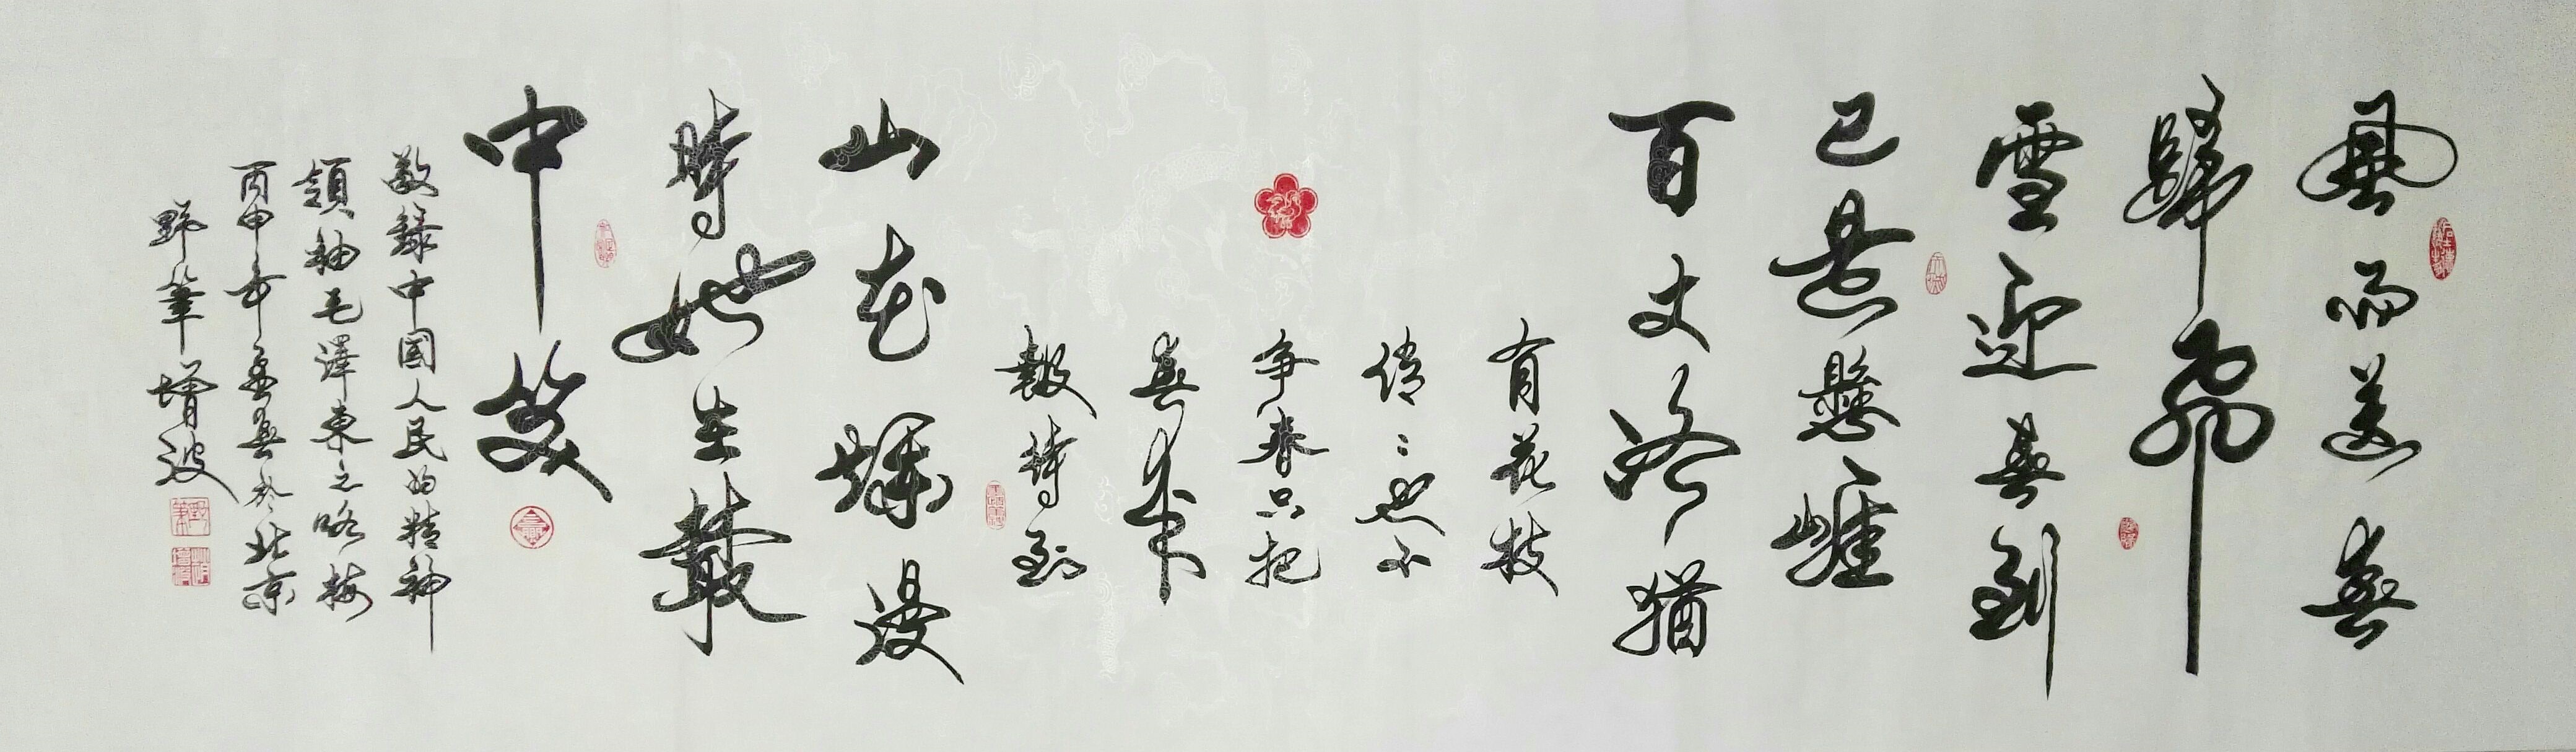 風雨送春
歸飛
雪迎春到
已是懸崖
百丈冰猶
有花枝
俏〻也不
爭春只把
春來
報待到
山花爛漫
時她在叢
中笑
敬錄中國人民的精神
領袖毛澤東之咏梅
丙申年孟夏於北京
野筆增波